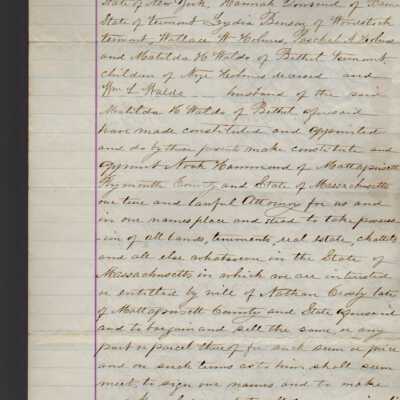 State of New York, Hannah Townsend of
State of Vermont Lydia Benson of Woodstock
Vermont, Wallace W Holmes, Paschal A Holmes
and Matilda H Waldo of Bethel Vermont,
children of Holmes deceased and
Wm L Waldo husband of the said
Matilda H Waldo of Bethel aforesaid
have made constituted and appointed
and do by these presents make constitute and
appoint Noah Hammond of Mattapoisett
Plymouth County and State of Massachusetts
our true and lawful Attorney for us and
in our names place and stead to take possess-
ion of all lands, tenements, real estate, chattels
and all else whatsoever in the State of
Massachusetts in which we are interested
or entitled by will of Nathan Crosby late
of Mattapoisett County and State aforesaid
and to bargain and sell the same or any
part or parcel thereof for such sum or price
and on such terms as to him shall seem
meet, to sign our names and to make